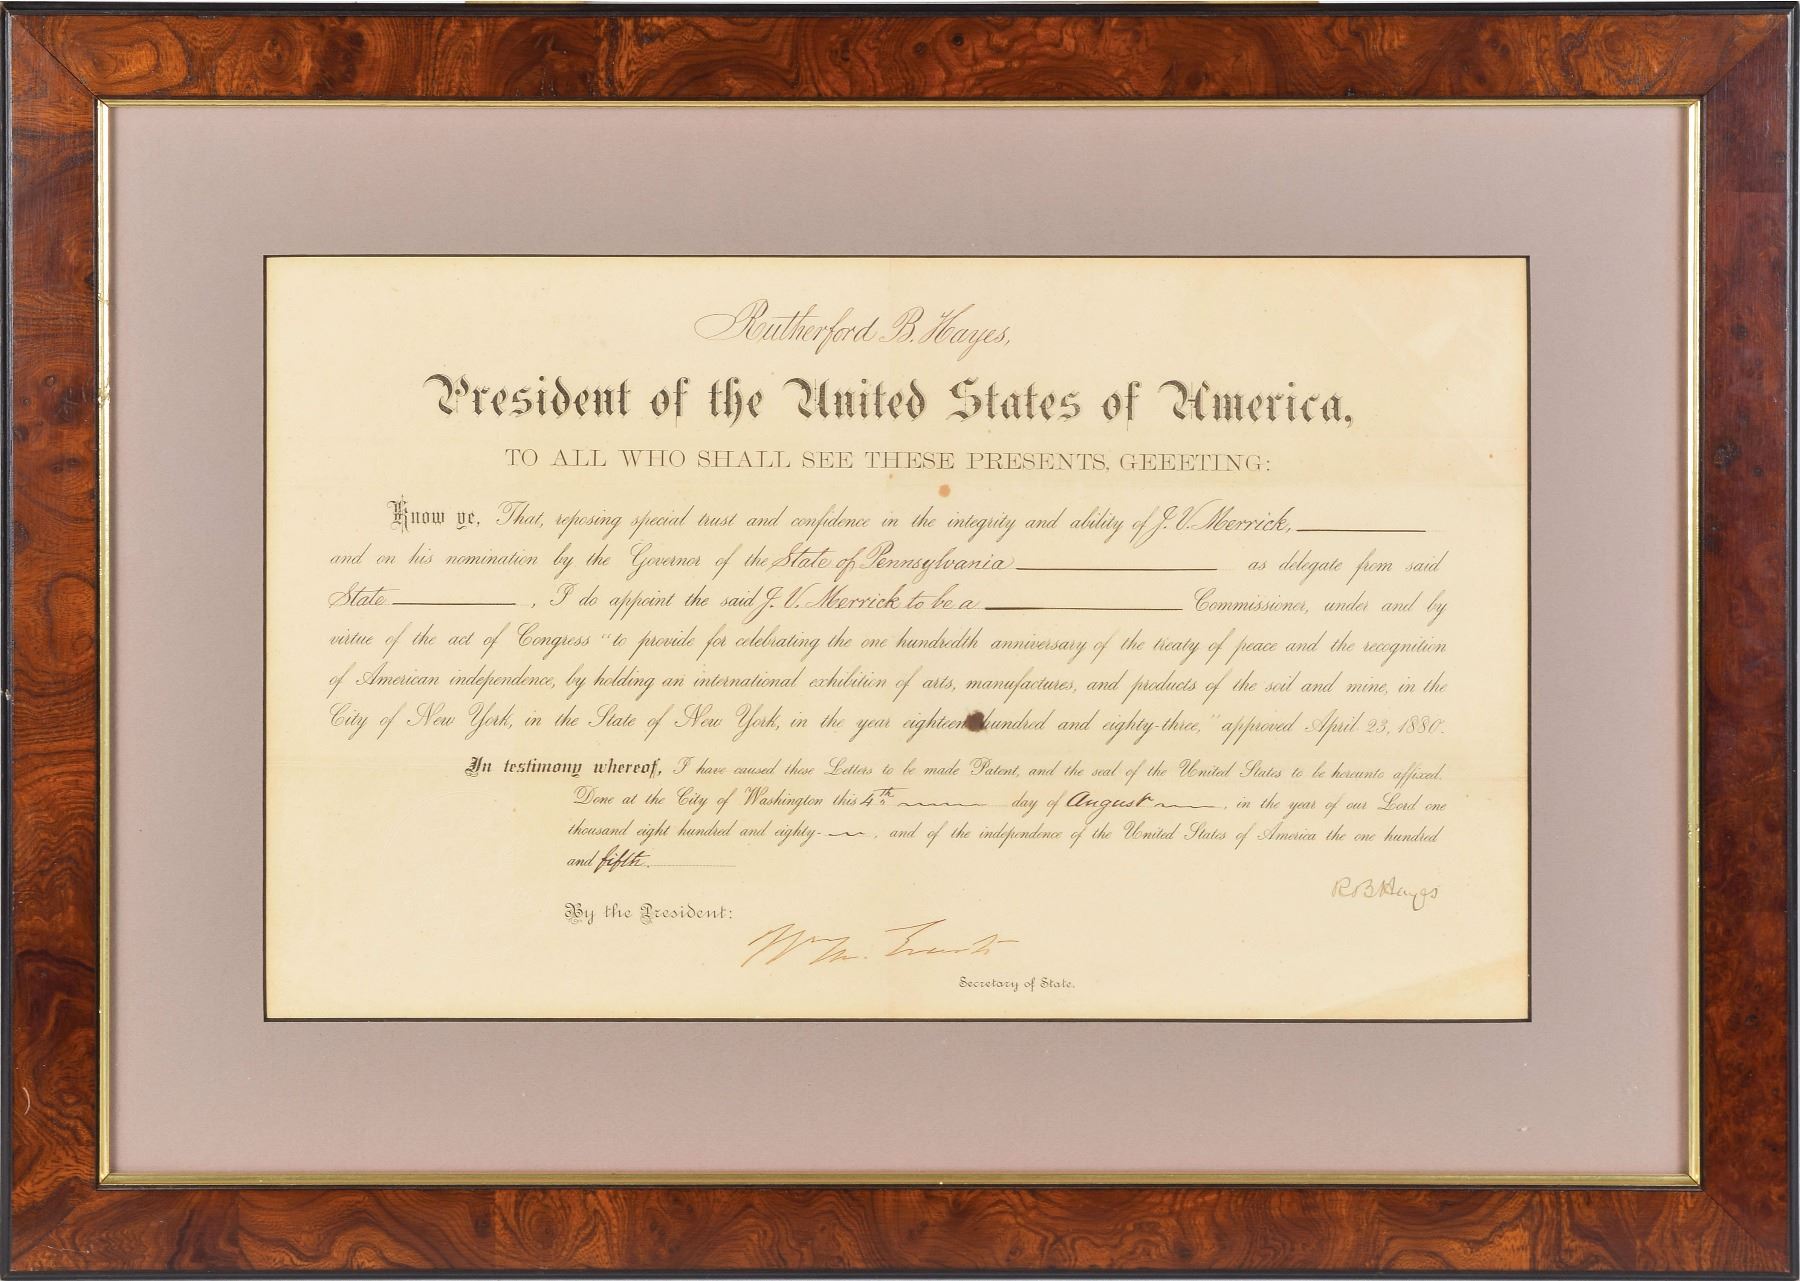 Rutherford B. Hayes,
President of the United States of America,
TO ALL WHO SHALL SEE THESE PRESENTS, GEEETING:
Know ye, That, reposing special trust and confidence in the integrity and ability of J. V. Merrick,
and on his nomination by the Governor of the State of Pennsylvania as delegate from said
State , I do appoint the said J. V. Merrick to be a Commissioner, under and by
virtue of the act of Congress "to provide for celebrating the one hundredth anniversary of the treaty of peace and the recognition
of American independence, by holding an international exhibition of arts, manufactures, and products of the soil and mine, in the
City of New York, in the State of New York, in the year eighteen hundred and eighty-three," approved April 23, 1880.
In testimony whereof, I have caused these Letters to be made Patent, and the seal of the United States to be hereunto affixed.
Done at the City of Washington this 4th day of August , in the year of our Lord one
thousand eight hundred and eighty- , and of the independence of the United States of America the one hundred
and fifth.
R B Hayes
By the President:
Wm M. Evarts
Secretary of State.